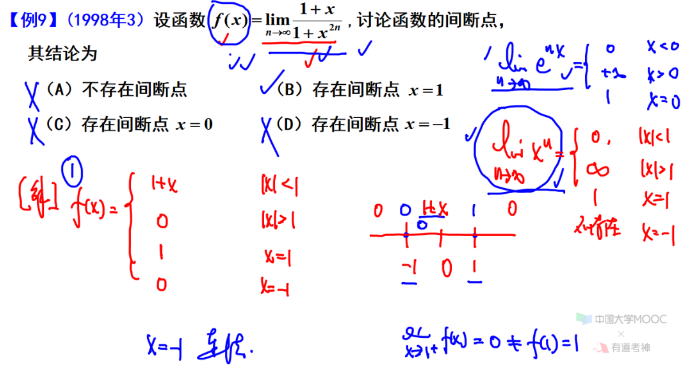 【例9】（1998年3）设函数 f(x)=lim_{n→∞} (1+x)/(1+x^{2n}) ，讨论函数的间断点，
其结论为
（A）不存在间断点 （B）存在间断点 x=1
（C）存在间断点 x=0 （D）存在间断点 x=-1
lim_{n→∞} e^{nx} = { 0 x<0
+∞ x>0
1 x=0
lim_{n→∞} x^n = { 0, |x|<1
∞ |x|>1
1 x=1
不存在 x=-1
[解] ① f(x)= { 1+x |x|<1
0 |x|>1
1 x=1
0 x=-1
0 0 1+x 1 0
0
-1 0 1
x=-1 连续.
lim_{x→1+} f(x)=0≠f(1)=1
中国大学MOOC
×
有道考神